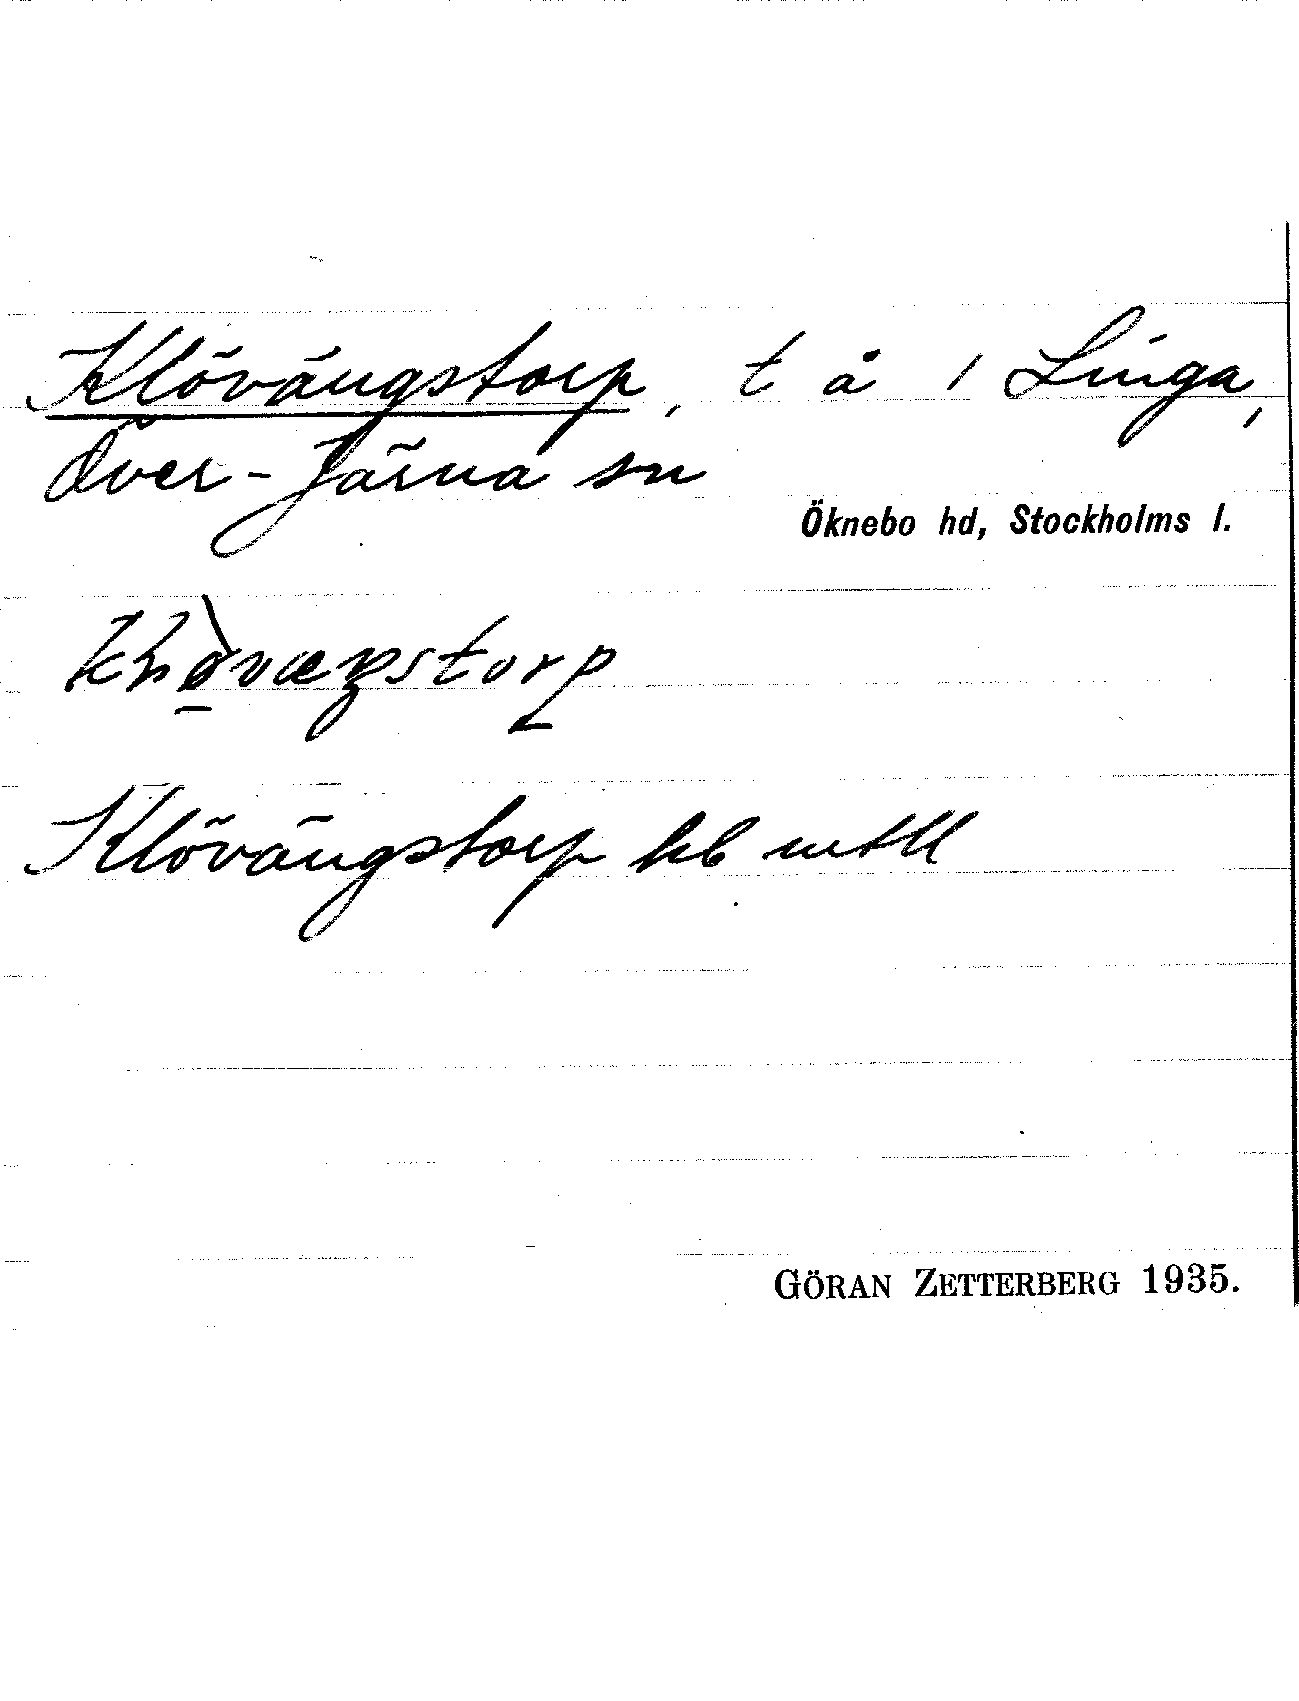 Klövängstorp, t å 1 Linga,
Över-Järna sn
Öknebo hd, Stockholms l.
Klövängstorp hb mtll
GÖRAN ZETTERBERG 1935.